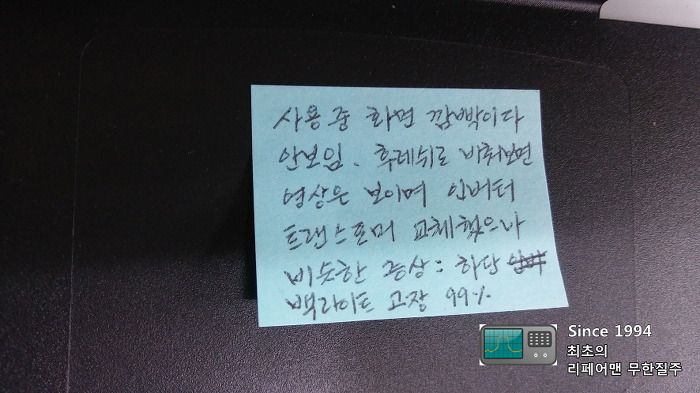 사용중 화면 깜빡이다
안보임. 후레쉬로 비춰보면
영상은 보이며 인버터
트랜스포머 교체했으나
비슷한 증상: 하단
백라이트 고장 99%
Since 1994
최초의
리페어맨 무한질주